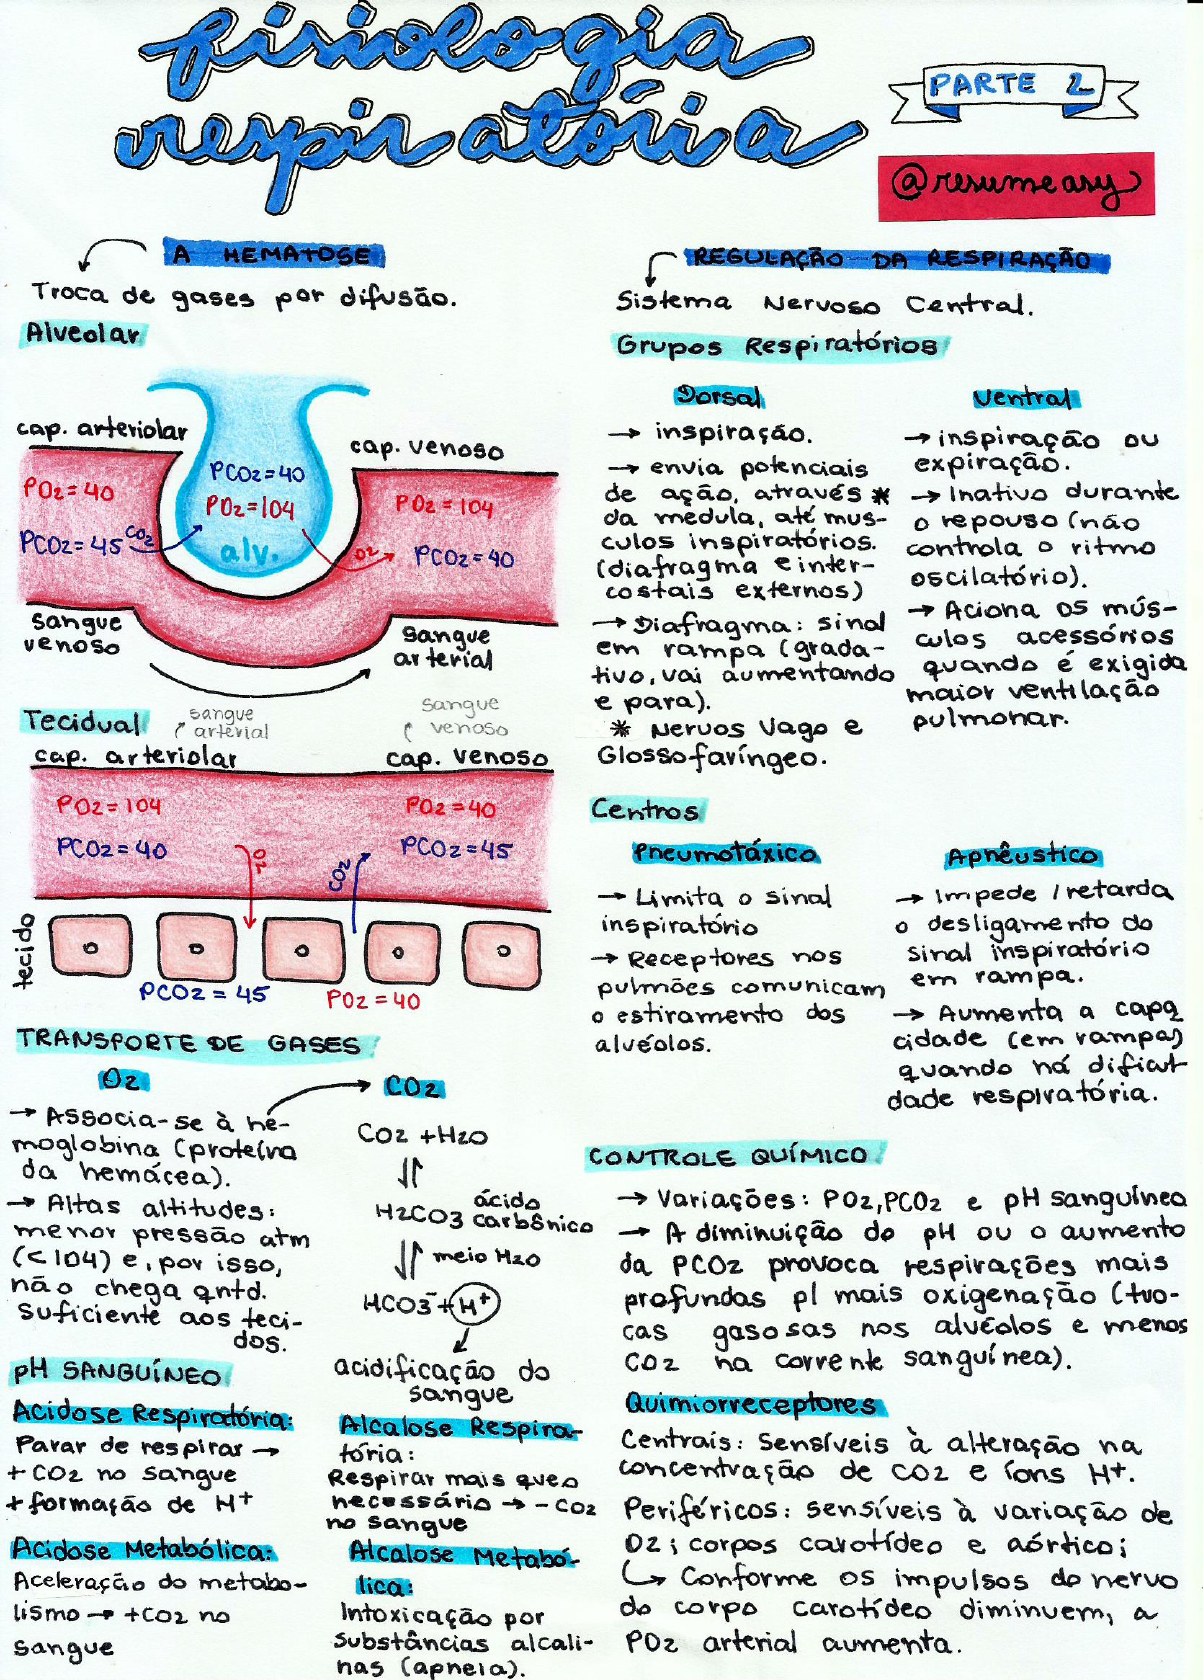 fisiologia
respiratória
PARTE 2
@resumeasy
A HEMATOSE
Troca de gases por difusão.
Alveolar
cap. arteriolar
cap. venoso
PCO2=40
PO2=104
alv.
PO2=40
PCO2=45
CO2
O2
PO2=104
PCO2=40
sangue
venoso
sangue
arterial
Tecidual
sangue
arterial
sangue
venoso
cap. arteriolar
cap. venoso
PO2=104
PCO2=40
O2
CO2
PO2=40
PCO2=45
tecido
PCO2=45
PO2=40
TRANSPORTE DE GASES
O2
→ Associa-se à he-
moglobina (proteína
da hemácea).
→ Altas altitudes:
menor pressão atm
(<104) e, por isso,
não chega qntd.
suficiente aos teci-
dos.
CO2
CO2 + H2O
H2CO3 ácido
carbônico
meio H2O
HCO3⁻ + H⁺
acidificação do
sangue
pH SANGUÍNEO
Acidose Respiratória:
Parar de respirar →
+ CO2 no sangue
+ formação de H⁺
Acidose Metabólica:
Aceleração do metabo-
lismo → +CO2 no
sangue
Alcalose Respira-
tória:
Respirar mais que o
necessário → -CO2
no sangue
Alcalose Metabó-
lica:
Intoxicação por
substâncias alcali-
nas (apneia).
REGULAÇÃO DA RESPIRAÇÃO
Sistema Nervoso Central.
Grupos Respiratórios
Dorsal
→ inspiração.
→ envia potenciais
de ação, através *
da medula, até mus-
culos inspiratórios.
(diafragma e inter-
costais externos)
→ Diafragma: sinal
em rampa (grada-
tivo, vai aumentando
e para).
* Nervos Vago e
Glossofaríngeo.
Ventral
→ inspiração ou
expiração.
→ Inativo durante
o repouso (não
controla o ritmo
oscilatório).
→ Aciona os mús-
culos acessórios
quando é exigida
maior ventilação
pulmonar.
Centros
Pneumotáxico
→ Limita o sinal
inspiratório
→ Receptores nos
pulmões comunicam
o estiramento dos
alvéolos.
Apnêustico
→ Impede / retarda
o desligamento do
sinal inspiratório
em rampa.
→ Aumenta a capa
cidade (em rampa)
quando há dificul-
dade respiratória.
CONTROLE QUÍMICO
→ Variações: PO2, PCO2 e pH sanguíneo
→ A diminuição do pH ou o aumento
da PCO2 provoca respirações mais
profundas p/ mais oxigenação (tro-
cas gasosas nos alvéolos e menos
CO2 na corrente sanguínea).
Quimiorreceptores
Centrais: Sensíveis à alteração na
concentração de CO2 e íons H⁺.
Periféricos: sensíveis à variação de
O2; corpos carotídeo e aórtico;
↳ Conforme os impulsos do nervo
do corpo carotídeo diminuem, a
PO2 arterial aumenta.